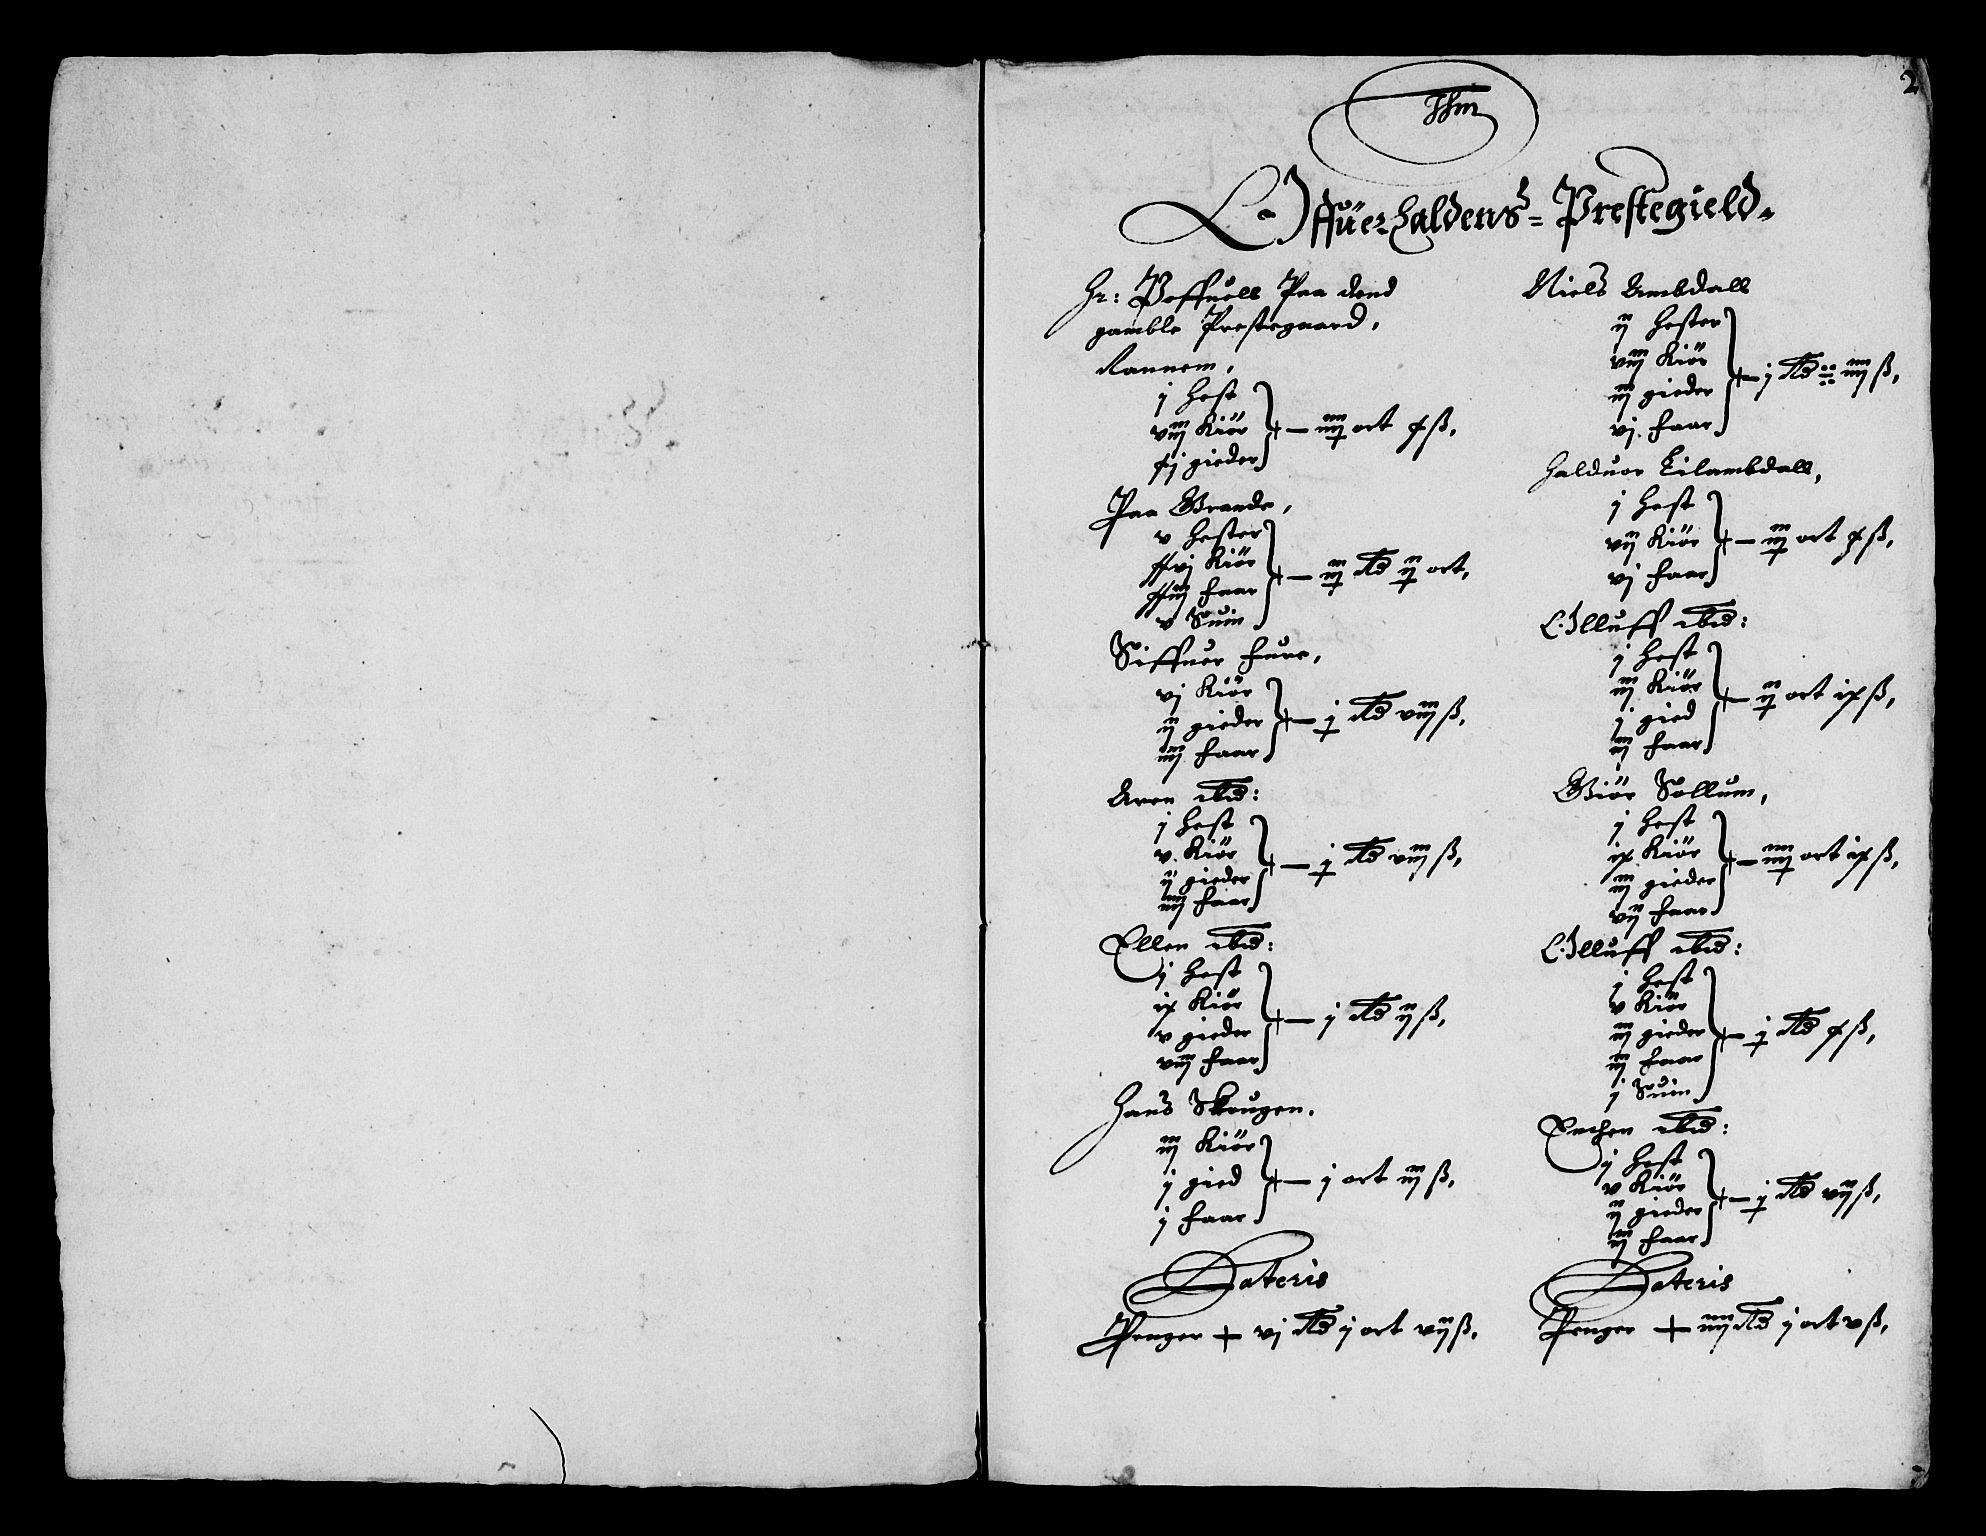 2
Offuerhaldens= Prestegield.
Hr: Poffuell Paa dend
gamble Prestegaard,
Rannem,
j hest
viij Kiör
xj gieder
iiij ort x ß,
Paa Grande,
v hester
xxvj Kiör
xxiij faar
v Suin
iij Rd ij ort,
Siffuer fure,
vj Kiör
ij gieder
iiij faar
j Rd viij ß,
Aren ibid:
j hest
v. Kiör
ij gieder
iiij faar
j Rd viij ß,
Ellen ibid:
j hest
ix Kiör
v gieder
viij faar
j Rd ij ß,
Hans Skougen.
iij Kiör
j gied
j faar
j ort iij ß,
Lateris
Penger vj Rd j ort vij ß,
Niels Ambdall
ij hester
viij Kiör
iij gieder
vj. faar
j Rd iiij ß,
Halduor Eilambdall,
j hest
vij Kiör
vj faar
iij ort x ß,
Olluff ibid:
j hest
iij Kiör
j gied
iij faar
ij ort ix ß,
Giör Sollum,
j hest
ix. Kiör
iij gieder
vij faar
iiij ort ix ß,
Olluff ibid:
j hest
v Kiör
iij gieder
iij faar
j Suin
j Rd x ß,
Enchen ibid:
j hest
v Kiör
ij gieder
iij faar
j Rd vij ß,
Lateris
Penger iiij Rd j ort v ß,